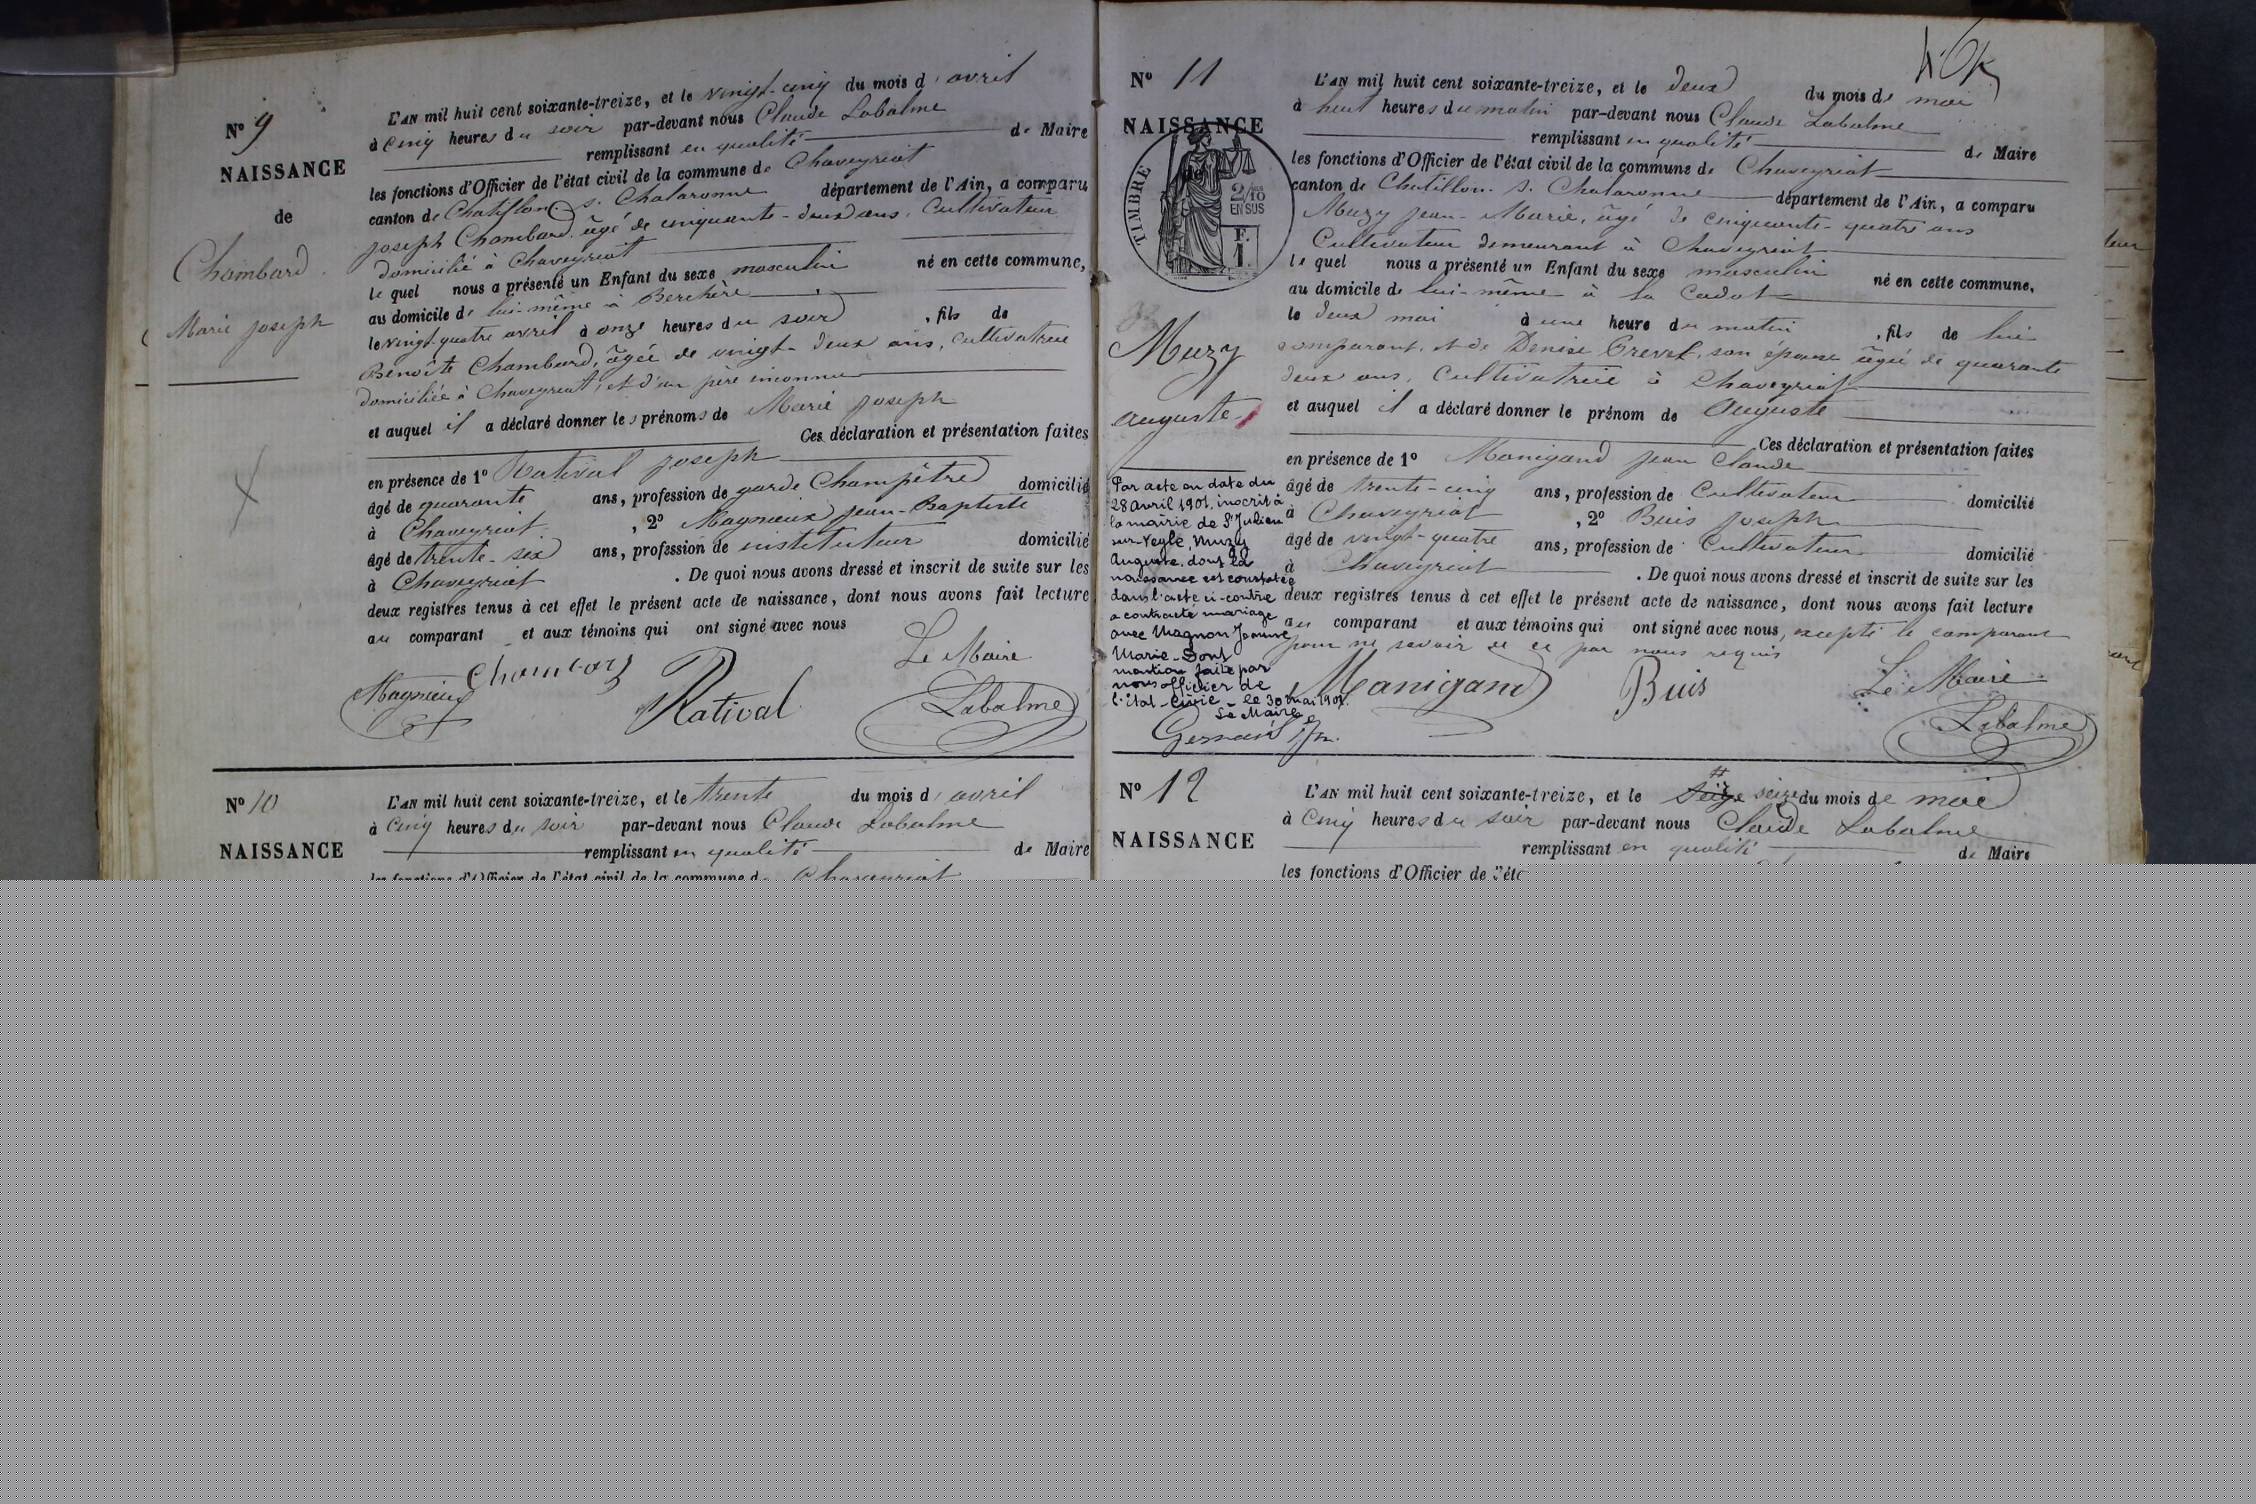 N° 9
NAISSANCE
de
Chambard
Marie Joseph
L'AN mil huit cent soixante-treize, et le vingt-cinq du mois d'avril
à cinq heures du soir par-devant nous Claude Labalme
remplissant en qualité de Maire
les fonctions d'Officier de l'état civil de la commune de Chaveyriat
canton de Chatillon s. Chalaronne département de l'Ain, a comparu
Joseph Chambard, âgé de cinquante-deux ans, Cultivateur
domicilié à Chaveyriat
le quel nous a présenté un Enfant du sexe masculin né en cette commune,
au domicile de lui-même à Berchère
le vingt-quatre avril à onze heures du soir, fils de
Benoîte Chambard, âgée de vingt-deux ans, cultivatrice
domiciliée à Chaveyriat, et d'un père inconnu
et auquel il a déclaré donner les prénoms de Marie Joseph
Ces déclaration et présentation faites
en présence de 1° Rativat Joseph
âgé de quarante ans, profession de garde Champêtre domicilié
à Chaveyriat, 2° Magnieux Jean-Baptiste
âgé de trente-six ans, profession de instituteur domicilié
à Chaveyriat. De quoi nous avons dressé et inscrit de suite sur les
deux registres tenus à cet effet le présent acte de naissance, dont nous avons fait lecture
au comparant et aux témoins qui ont signé avec nous
Le Maire
Magnieux Chambard Rativat Labalme
N° 10
NAISSANCE
L'AN mil huit cent soixante-treize, et le trente du mois d'avril
à cinq heures du soir par-devant nous Claude Labalme
remplissant en qualité de Maire
les fonctions d'Officier de l'état civil de la commune de Chaveyriat
N° 11
NAISSANCE
de
TIMBRE
2/10
EN SUS
F.
1.
Muzy
Auguste
Par acte en date du
28 avril 1901, inscrit à
la mairie de St Julien
sur-Veyle, Muzy
Auguste, dont la
naissance est constatée
dans l'acte ci-contre
a contracté mariage
avec Magnon Jeanne
Marie - Dont
mention faite par
nous officier de
l'état-Civil - le 30 mai 1901.
Le Maire
L'AN mil huit cent soixante-treize, et le deux du mois de mai
à huit heures du matin par-devant nous Claude Labalme
remplissant en qualité de Maire
les fonctions d'Officier de l'état civil de la commune de Chaveyriat
canton de Chatillon s. Chalaronne département de l'Ain, a comparu
Muzy Jean-Marie, âgé de cinquante-quatre ans
Cultivateur demeurant à Chaveyriat
le quel nous a présenté un Enfant du sexe masculin né en cette commune,
au domicile de lui-même à la Cadot
le deux mai à une heure du matin, fils de lui
comparant, et de Denise Crevel, son épouse âgée de quarante
deux ans, Cultivatrice à Chaveyriat
et auquel il a déclaré donner le prénom de Auguste
Ces déclaration et présentation faites
en présence de 1° Manigand Jean Claude
âgé de trente-cinq ans, profession de Cultivateur domicilié
à Chaveyriat, 2° Buis Joseph
âgé de vingt-quatre ans, profession de Cultivateur domicilié
à Chaveyriat. De quoi nous avons dressé et inscrit de suite sur les
deux registres tenus à cet effet le présent acte de naissance, dont nous avons fait lecture
au comparant et aux témoins qui ont signé avec nous, excepté le comparant
pour ne savoir de ce par nous requis
Manigand Buis Le Maire
Labalme
N° 12
NAISSANCE
L'AN mil huit cent soixante-treize, et le seize seize du mois de mai
à cinq heures du soir par-devant nous Claude Labalme
remplissant en qualité de Maire
les fonctions d'Officier de l'état